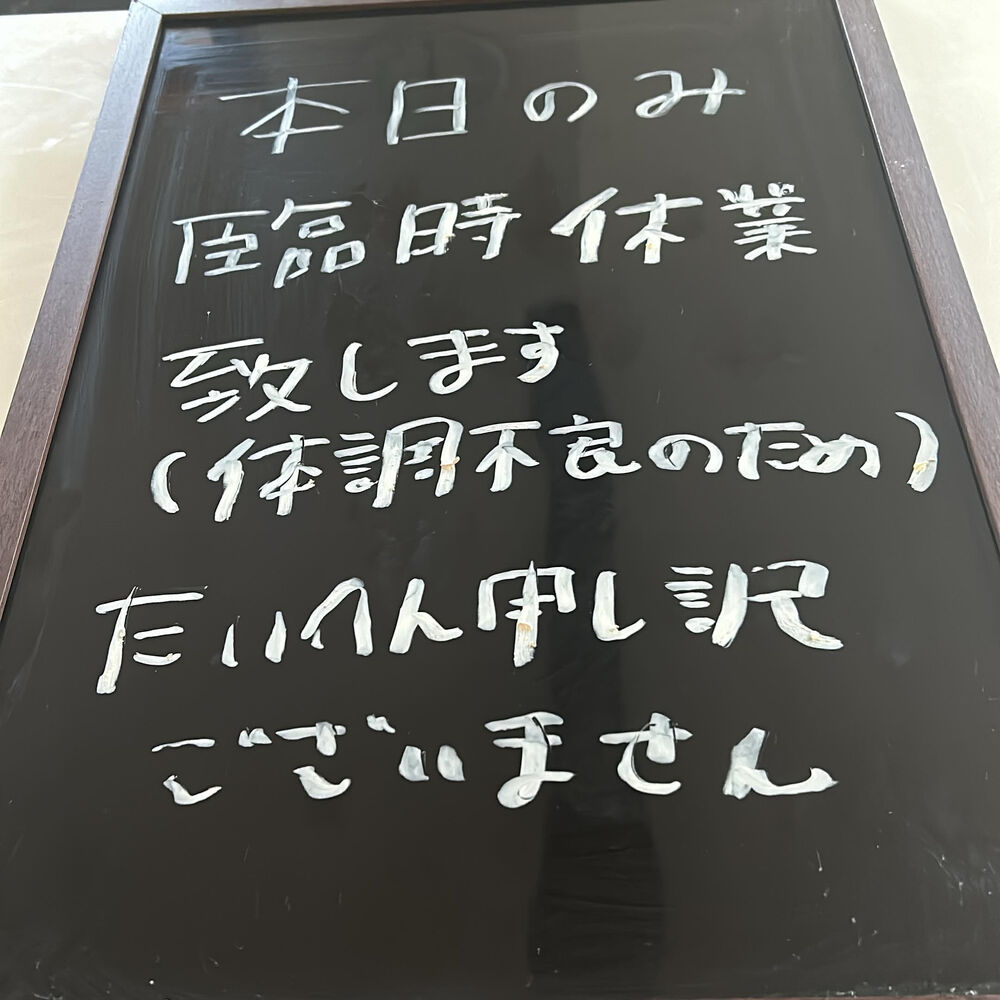 本日のみ
臨時休業
致します
(体調不良のため)
たいへん申し訳
ございません